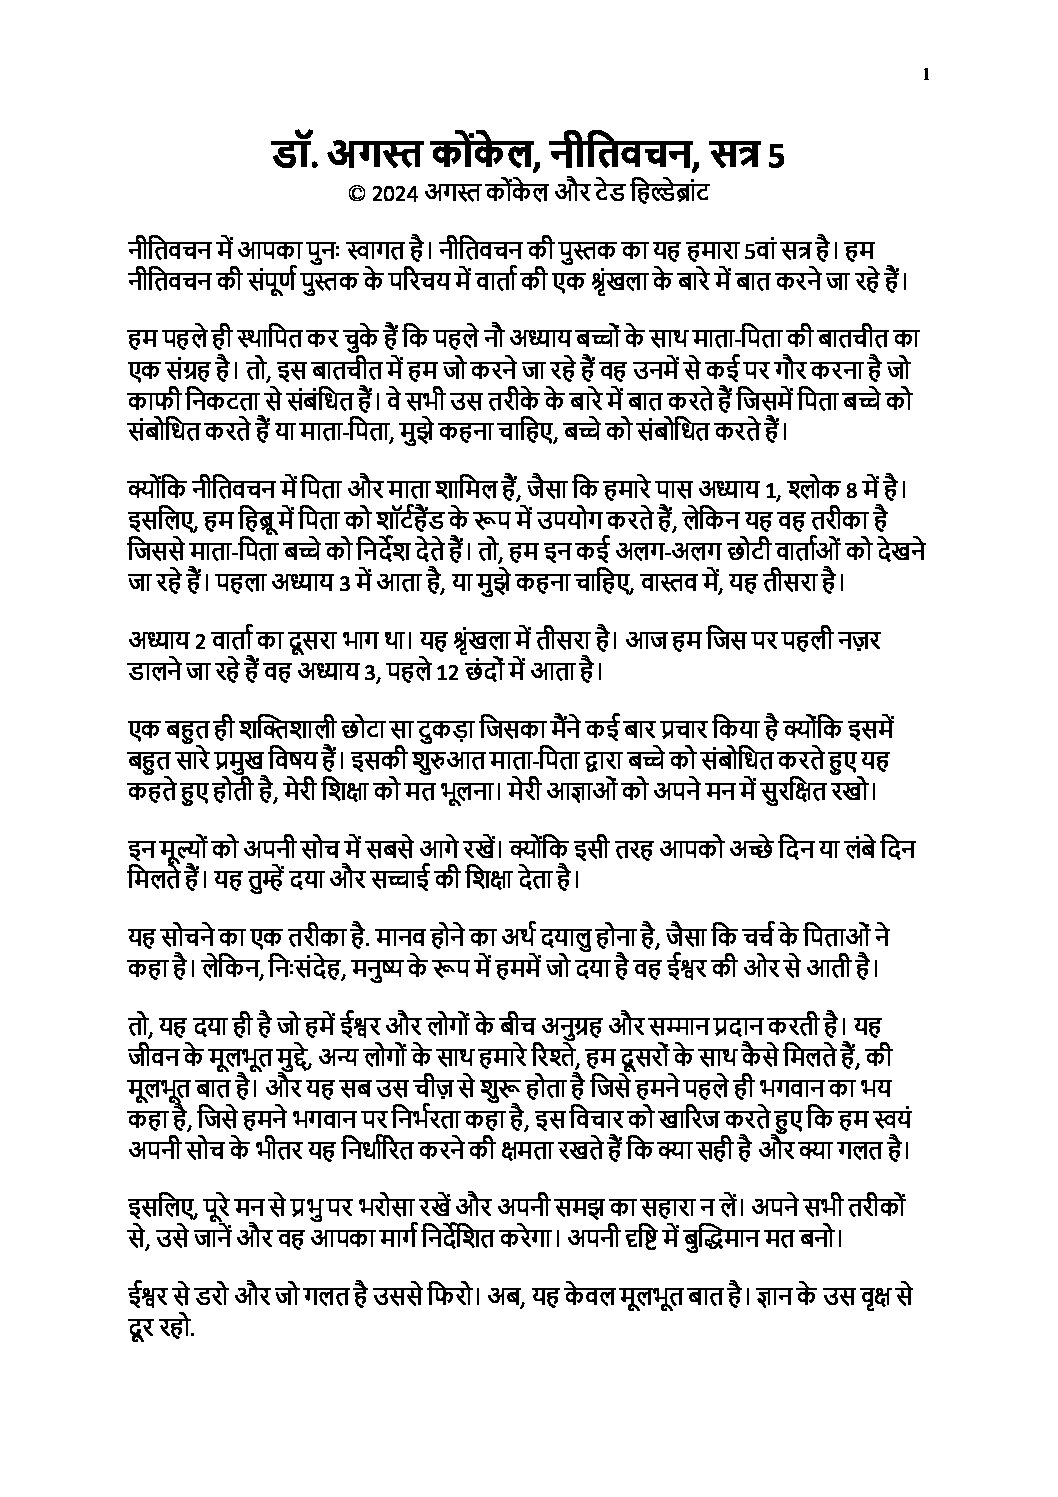 1
डॉ. अगस्त कोंकेल, नीतिवचन, सत्र 5
© 2024 अगस्त कोंकेल और टेड हिल्डेब्रांट
नीतिवचन में आपका पुनः स्वागत है। नीतिवचन की पुस्तक का यह हमारा 5वां सत्र है। हम
नीतिवचन की संपूर्ण पुस्तक के परिचय में वार्ता की एक श्रृंखला के बारे में बात करने जा रहे हैं।
हम पहले ही स्थापित कर चुके हैं कि पहले नौ अध्याय बच्चों के साथ माता-पिता की बातचीत का
एक संग्रह है। तो, इस बातचीत में हम जो करने जा रहे हैं वह उनमें से कई पर गौर करना है जो
काफी निकटता से संबंधित हैं। वे सभी उस तरीके के बारे में बात करते हैं जिसमें पिता बच्चे को
संबोधित करते हैं या माता-पिता, मुझे कहना चाहिए, बच्चे को संबोधित करते हैं।
क्योंकि नीतिवचन में पिता और माता शामिल हैं, जैसा कि हमारे पास अध्याय 1, श्लोक 8 में है।
इसलिए, हम हिब्रू में पिता को शॉर्टहैंड के रूप में उपयोग करते हैं, लेकिन यह वह तरीका है
जिससे माता-पिता बच्चे को निर्देश देते हैं। तो, हम इन कई अलग-अलग छोटी वार्ताओं को देखने
जा रहे हैं। पहला अध्याय 3 में आता है, या मुझे कहना चाहिए, वास्तव में, यह तीसरा है।
अध्याय 2 वार्ता का दूसरा भाग था। यह श्रृंखला में तीसरा है। आज हम जिस पर पहली नज़र
डालने जा रहे हैं वह अध्याय 3, पहले 12 छंदों में आता है।
एक बहुत ही शक्तिशाली छोटा सा टुकड़ा जिसका मैंने कई बार प्रचार किया है क्योंकि इसमें
बहुत सारे प्रमुख विषय हैं। इसकी शुरुआत माता-पिता द्वारा बच्चे को संबोधित करते हुए यह
कहते हुए होती है, मेरी शिक्षा को मत भूलना। मेरी आज्ञाओं को अपने मन में सुरक्षित रखो।
इन मूल्यों को अपनी सोच में सबसे आगे रखें। क्योंकि इसी तरह आपको अच्छे दिन या लंबे दिन
मिलते हैं। यह तुम्हें दया और सच्चाई की शिक्षा देता है।
यह सोचने का एक तरीका है. मानव होने का अर्थ दयालु होना है, जैसा कि चर्च के पिताओं ने
कहा है। लेकिन, निःसंदेह, मनुष्य के रूप में हममें जो दया है वह ईश्वर की ओर से आती है।
तो, यह दया ही है जो हमें ईश्वर और लोगों के बीच अनुग्रह और सम्मान प्रदान करती है। यह
जीवन के मूलभूत मुद्दे, अन्य लोगों के साथ हमारे रिश्ते, हम दूसरों के साथ कैसे मिलते हैं, की
मूलभूत बात है। और यह सब उस चीज़ से शुरू होता है जिसे हमने पहले ही भगवान का भय
कहा है, जिसे हमने भगवान पर निर्भरता कहा है, इस विचार को खारिज करते हुए कि हम स्वयं
अपनी सोच के भीतर यह निर्धारित करने की क्षमता रखते हैं कि क्या सही है और क्या गलत है।
इसलिए, पूरे मन से प्रभु पर भरोसा रखें और अपनी समझ का सहारा न लें। अपने सभी तरीकों
से, उसे जानें और वह आपका मार्ग निर्देशित करेगा। अपनी दृष्टि में बुद्धिमान मत बनो।
ईश्वर से डरो और जो गलत है उससे फिरो। अब, यह केवल मूलभूत बात है। ज्ञान के उस वृक्ष से
दूर रहो.